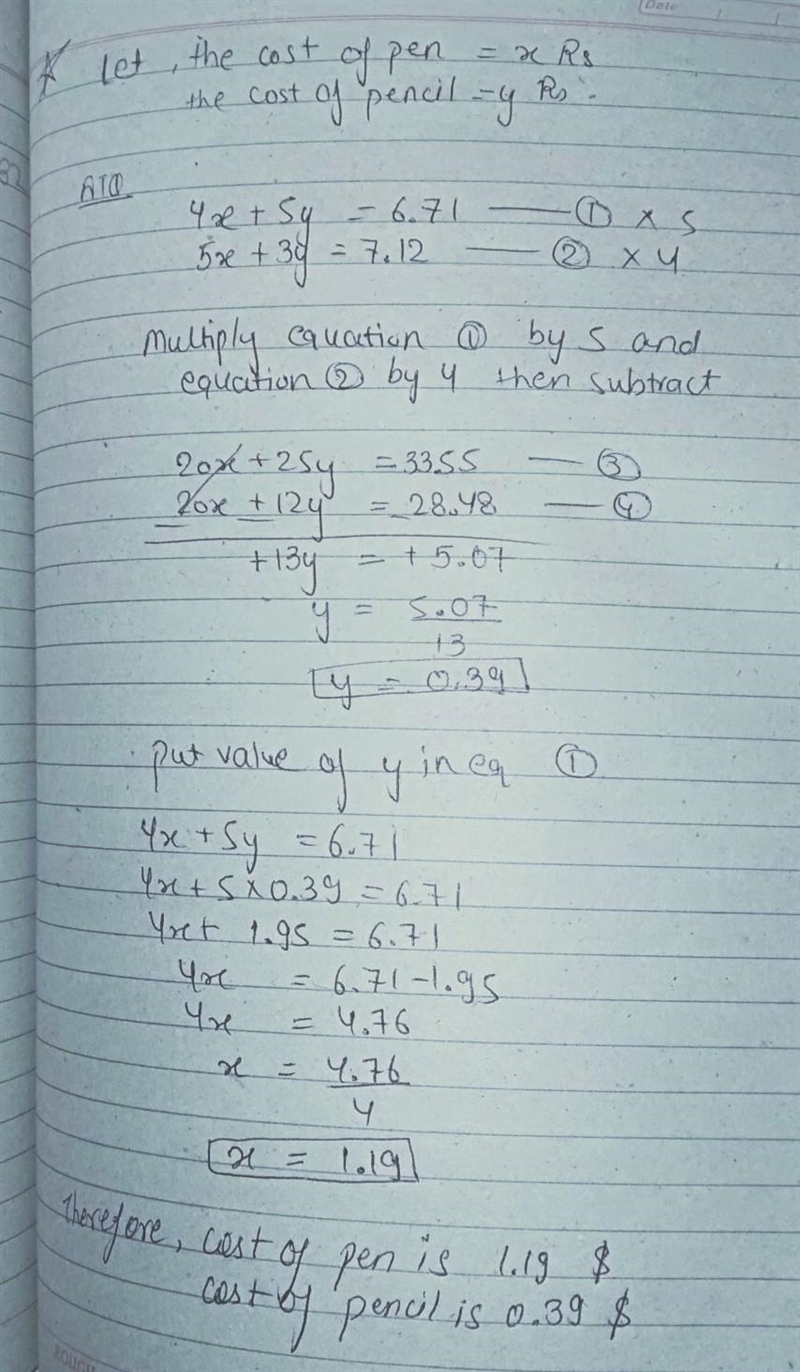 Date
Let, the cost of pen = x Rs
the cost of pencil = y Rs.
ATQ
4x + 5y = 6.71 — ① × 5
5x + 3y = 7.12 — ② × 4
Multiply equation ① by 5 and
equation ② by 4 then subtract
20x + 25y = 33.55 — ③
20x + 12y = 28.48 — ④
+13y = + 5.07
y = 5.07
13
y = 0.39
put value of y in eq ①
4x + 5y = 6.71
4x + 5 × 0.39 = 6.71
4x + 1.95 = 6.71
4x = 6.71 - 1.95
4x = 4.76
x = 4.76
4
x = 1.19
Therefore, cost of pen is 1.19 $
cost of pencil is 0.39 $